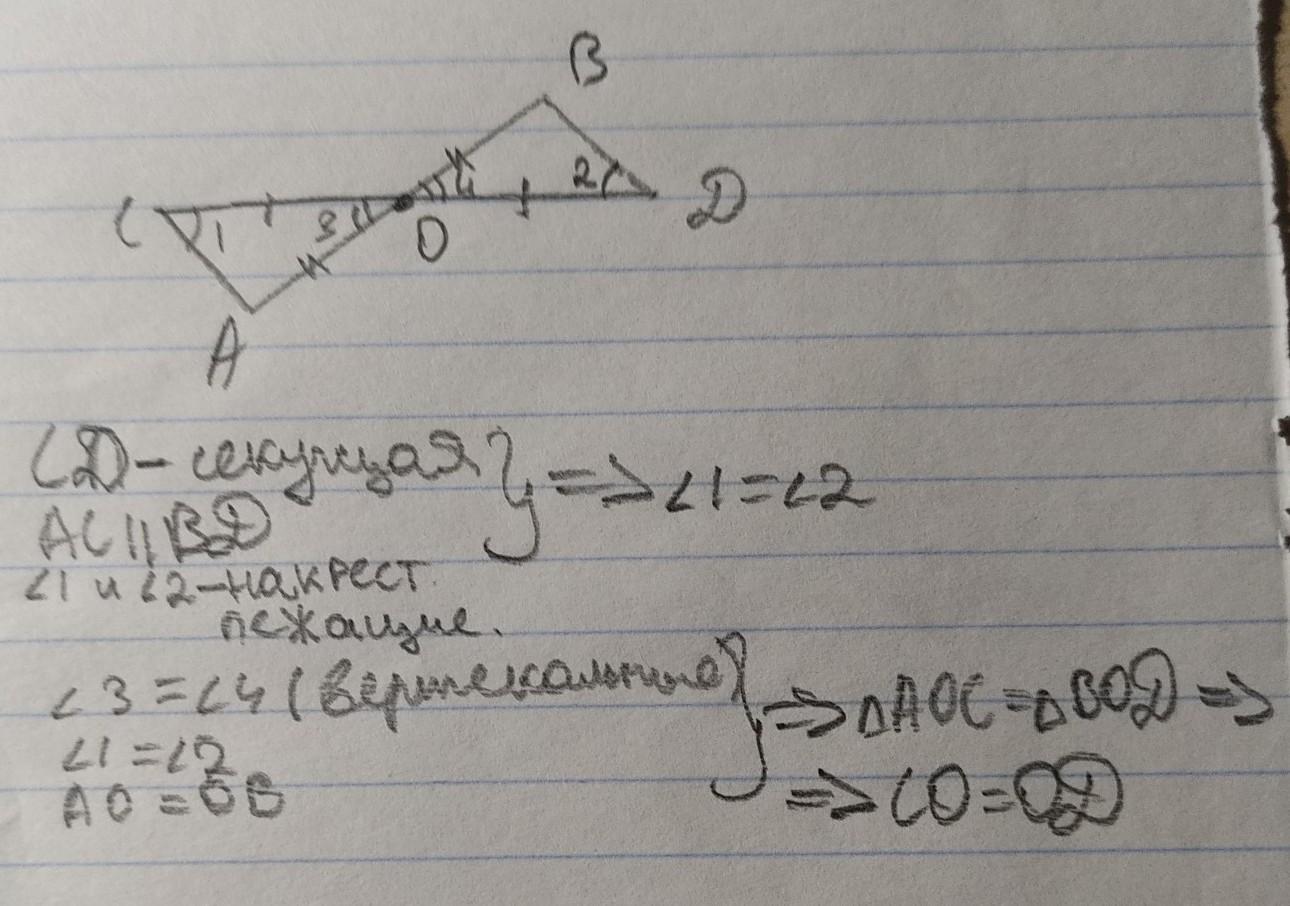 B
C
1
3
O
4
2
D
A
CD - секущая } => ∠1 = ∠2
AC || BD
∠1 и ∠2 - накрест
лежащие.
∠3 = ∠4 (вертекальные) } => △AOC = △BOD =>
∠1 = ∠2
AO = OB => CO = OD